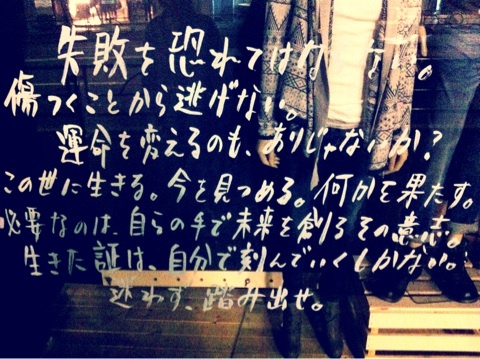 失敗を恐れてはならない。
傷つくことから逃げない。
運命を変えるのも、ありじゃないか？
この世に生きる。今を見つめる。何かを果たす。
必要なのは、自らの手で未来を創るその意志。
生きた証は、自分で刻んでいくしかない。
迷わず、踏み出せ。